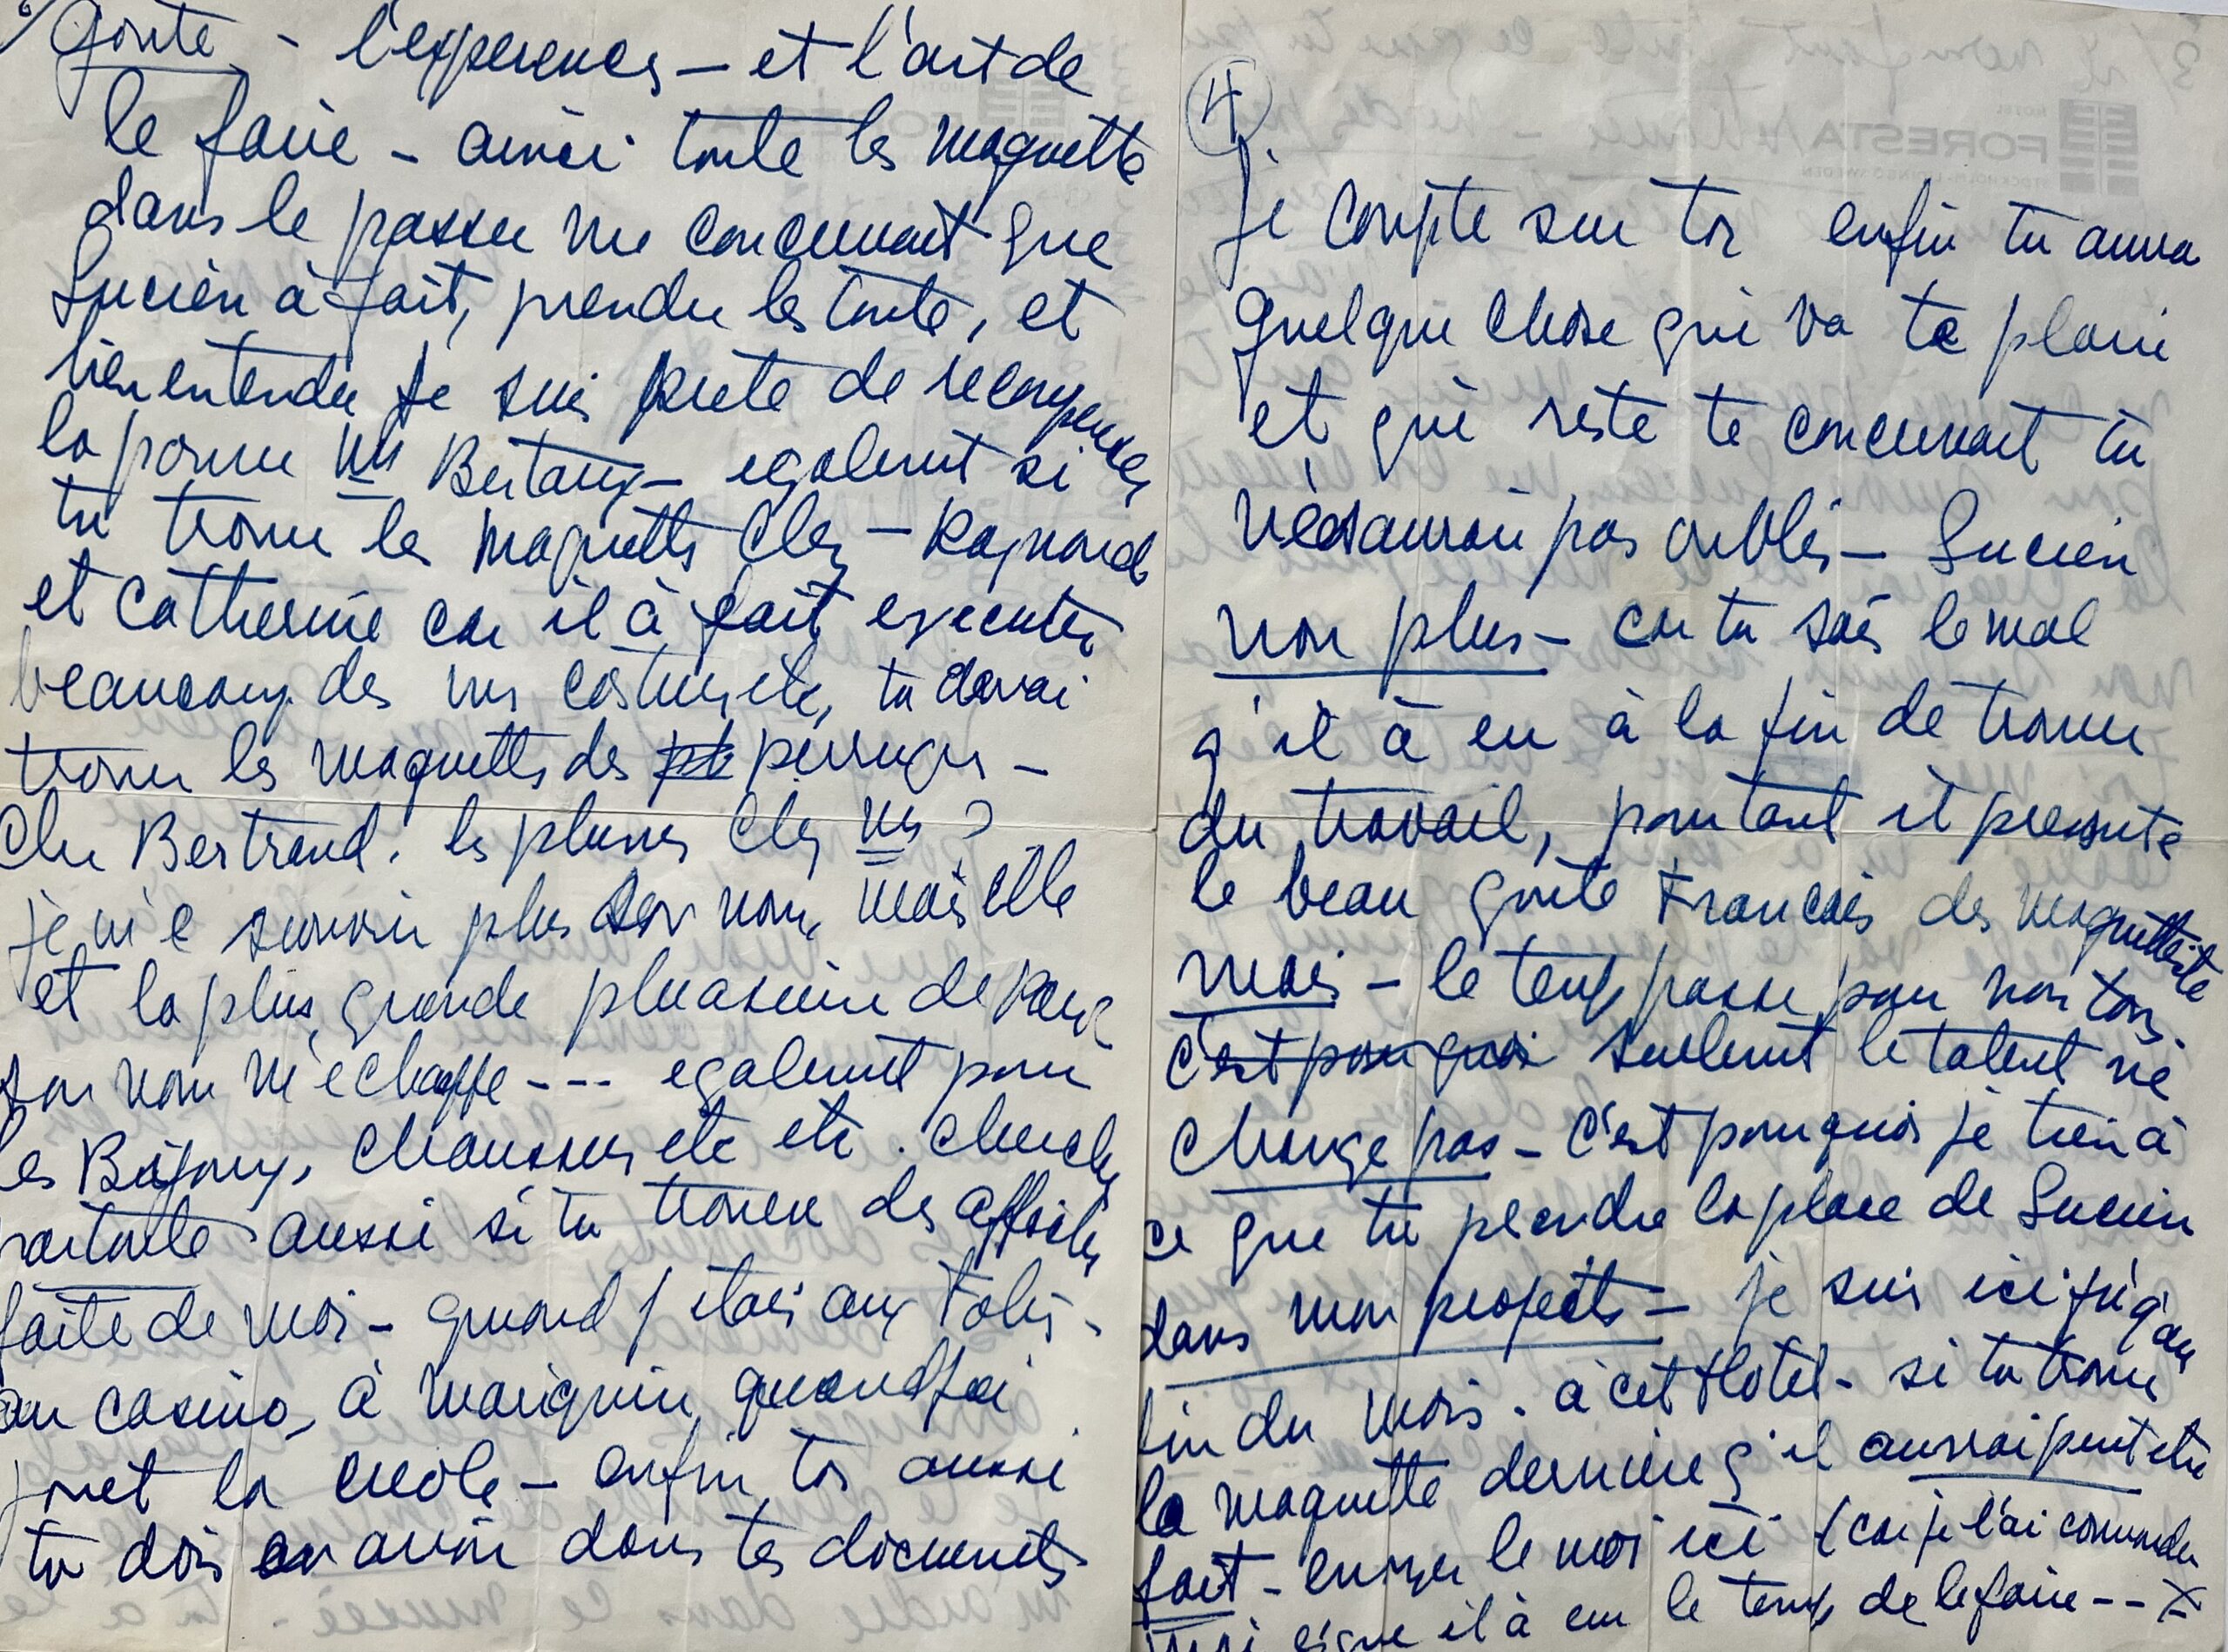 goute - l'experences - et l'art de
le faire - ainsi toute les maquette
dans le passee me concernant que
Lucien à fait, prendre les toute, et
bien entendu je suis prete de recompenser
la pomme Mr Bertaux - egalement si
tu trouve les maquetts chez - Raymonde
et Catherine car il à fait executer
beaucoup des mes costumes etc, tu devrai
trouve les maquetts des perruques -
Chez Bertrand. les plumes chez Mr ?
je m'e souvien plus son nom, mais elle
et la plus grande plumassiere de Paris
son nom m'echappe --- egalement pour
les Bijoux, Chaussures etc etc. cherche
partoute aussi si tu trouve des affiches
faite de moi - quand j'etais aux Folies -
au casino, à Marigny quand j'ai
jouet la creole - enfin toi aussi
tu dois en avoir dans tes documents
4
je compte sur toi enfin tu aura
quelque chose qui va te plaire
et qui reste te concernant tu
n'e saurai pas oublés - Lucien
non plus - car tu sais le mal
q'il à eu à la fin de trouver
du travail, pourtant il presente
le beau goute Francais des maquettiste
mais - le temps passe pour nous tous
c'est pourquoi seulement le talent ne
change pas - C'est pourquoi je tien à
ce que tu prendre la place de Lucien
dans mon projects - je suis ici ju'q'au
fin du mois - à cet Hotel - si tu trouve
la maquette derniere q'il aurrai peut etre
fait - envoyer le moi ici (car je l'ai commander
il à eu le temps de le faire -- X
HOTEL
FORESTA